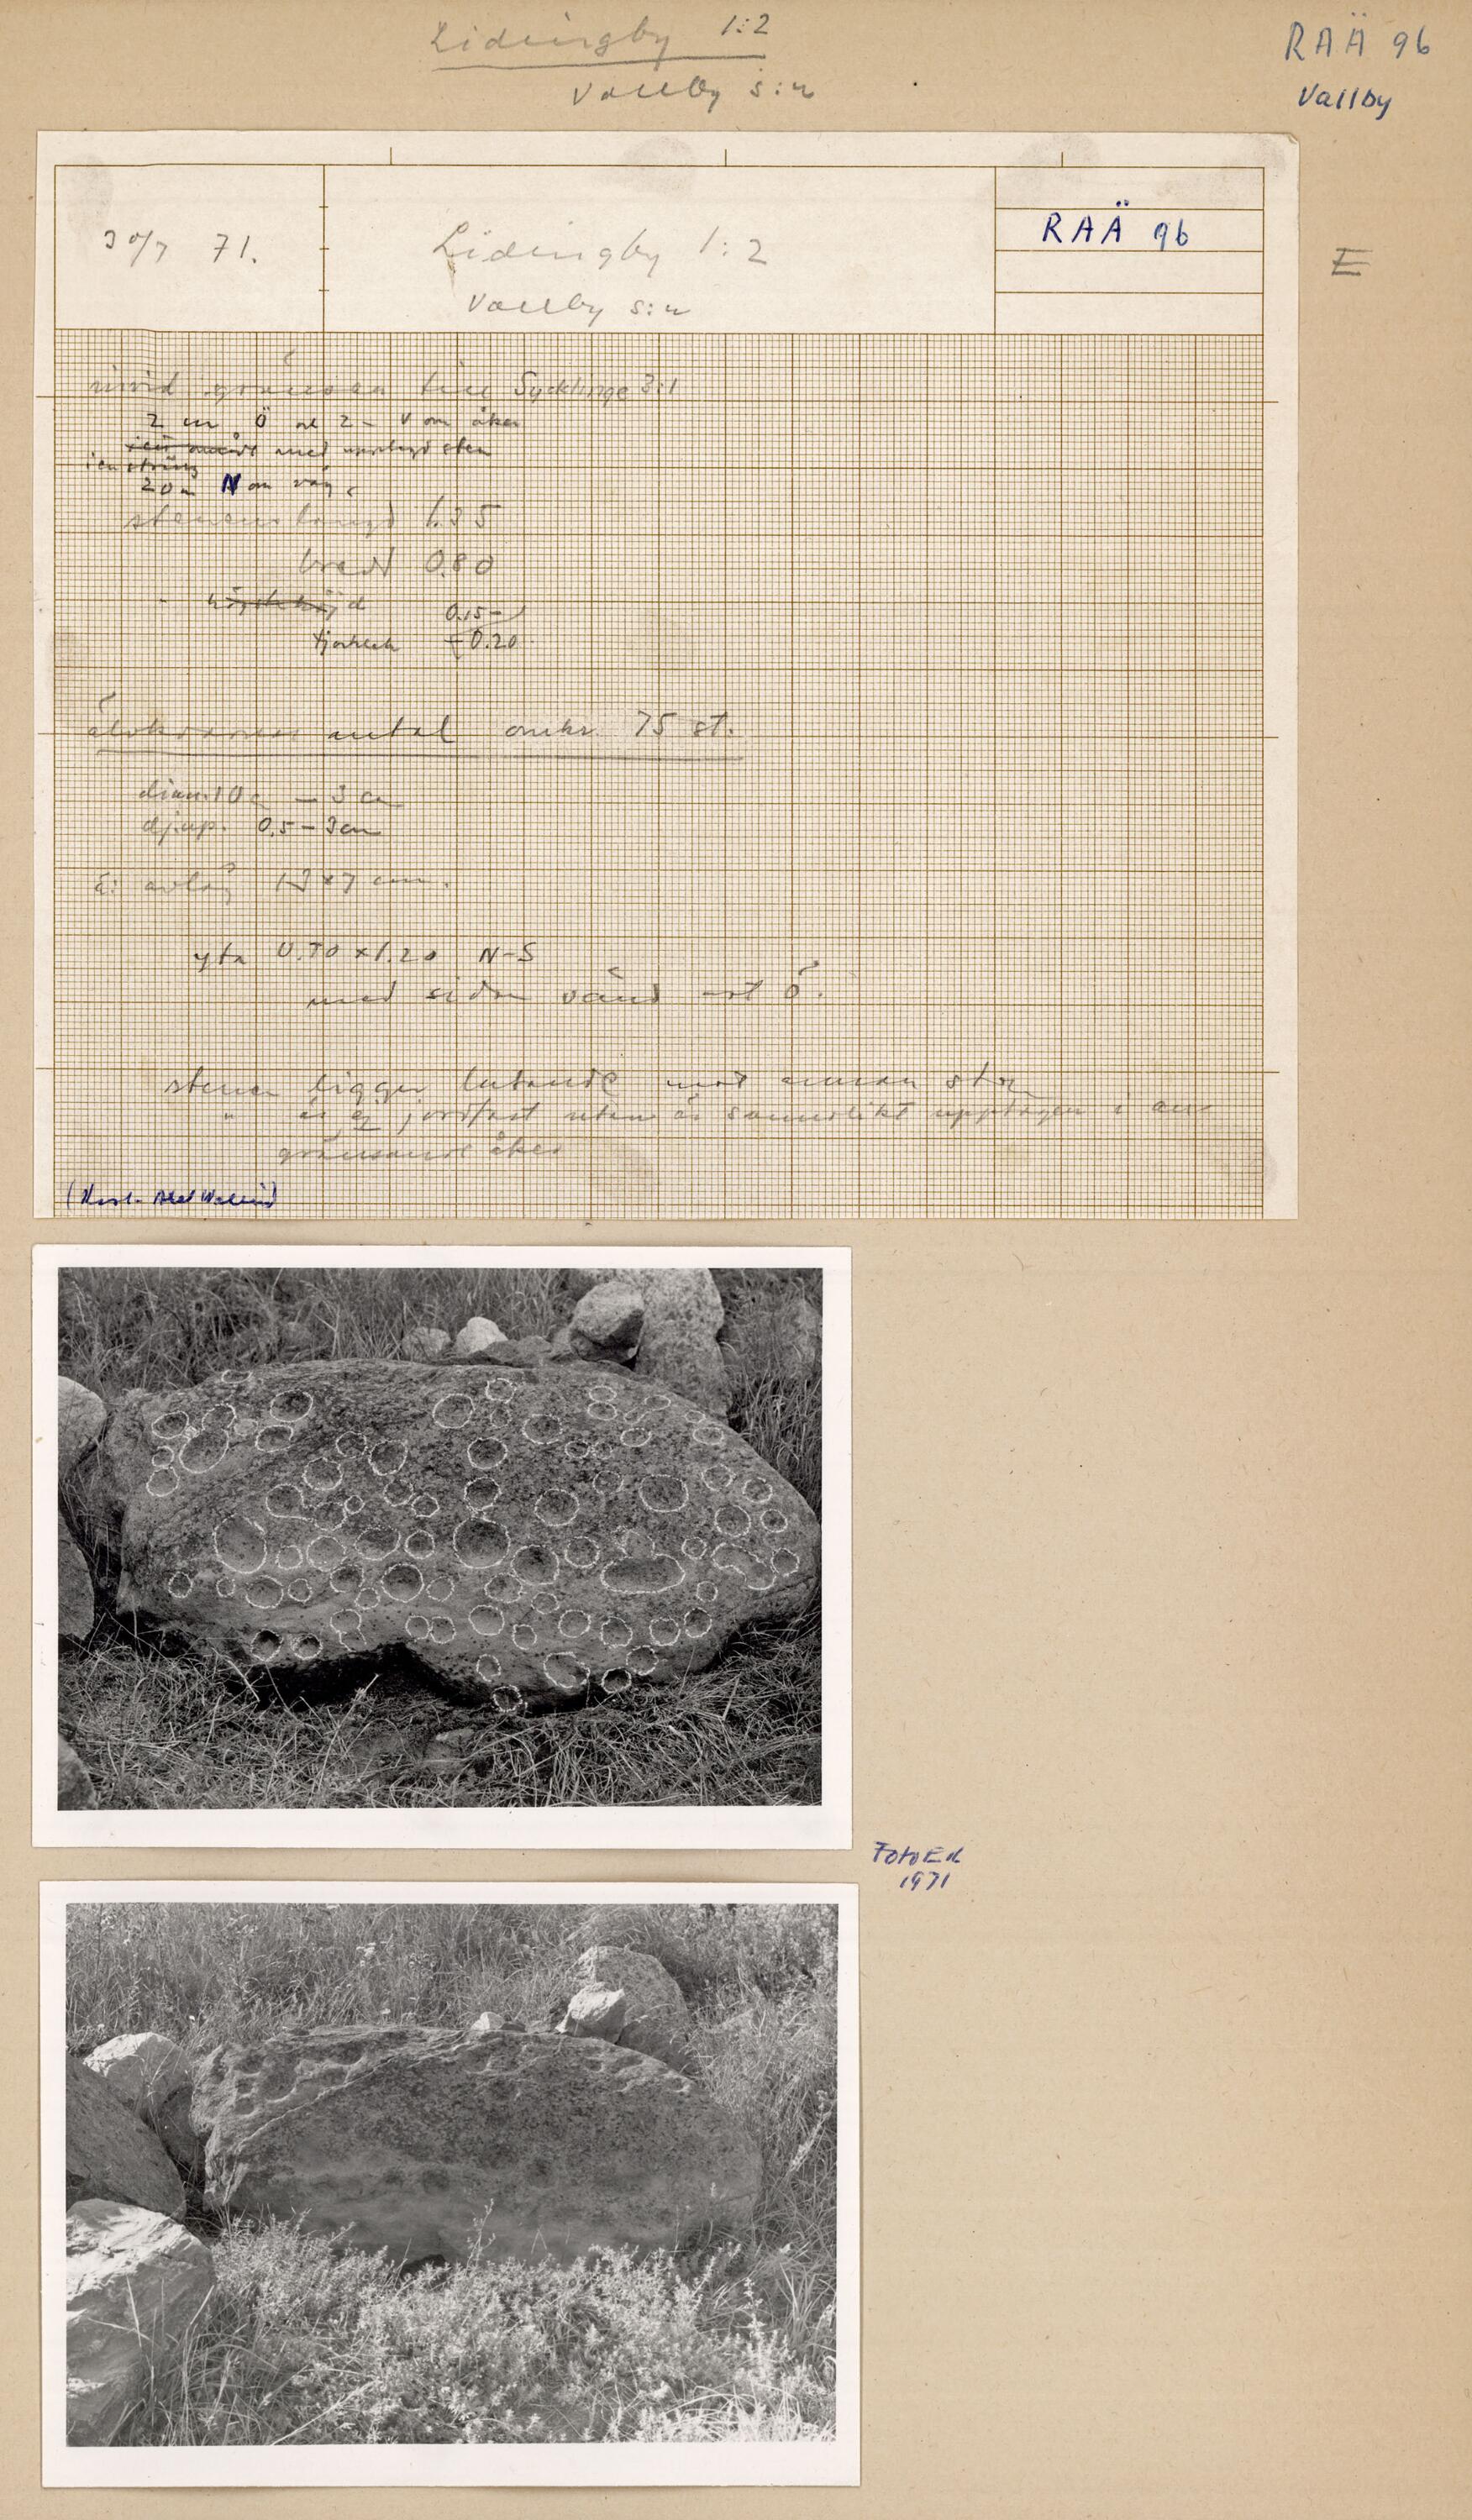 Lidingby 1:2
Vallby s:n
RAÄ 96
Vallby
30/7 71.
Lidingby 1:2
Vallby s:n
RAÄ 96
E
invid gränsen till Sycklinge 3:1
2 m Ö och 2 m V om åker
med upplagd sten
i en sträng
20 m N om väg
stenens längd 1.35
bredd 0.80
högsta höjd 0.15-
tjocklek 0.20
älvkvarnar antal omkr. 75 st.
diam. 10 cm - 3 cm
djup. 0,5 - 3 cm
avlång 13x7 cm.
yta 0.70 x 1.20 N-S
med sidan vänd mot Ö.
stenen ligger lutande mot annan sten
" är ej jordfast utan är sannolikt upptagen i an-
gränsande åker
Foto EK
1971